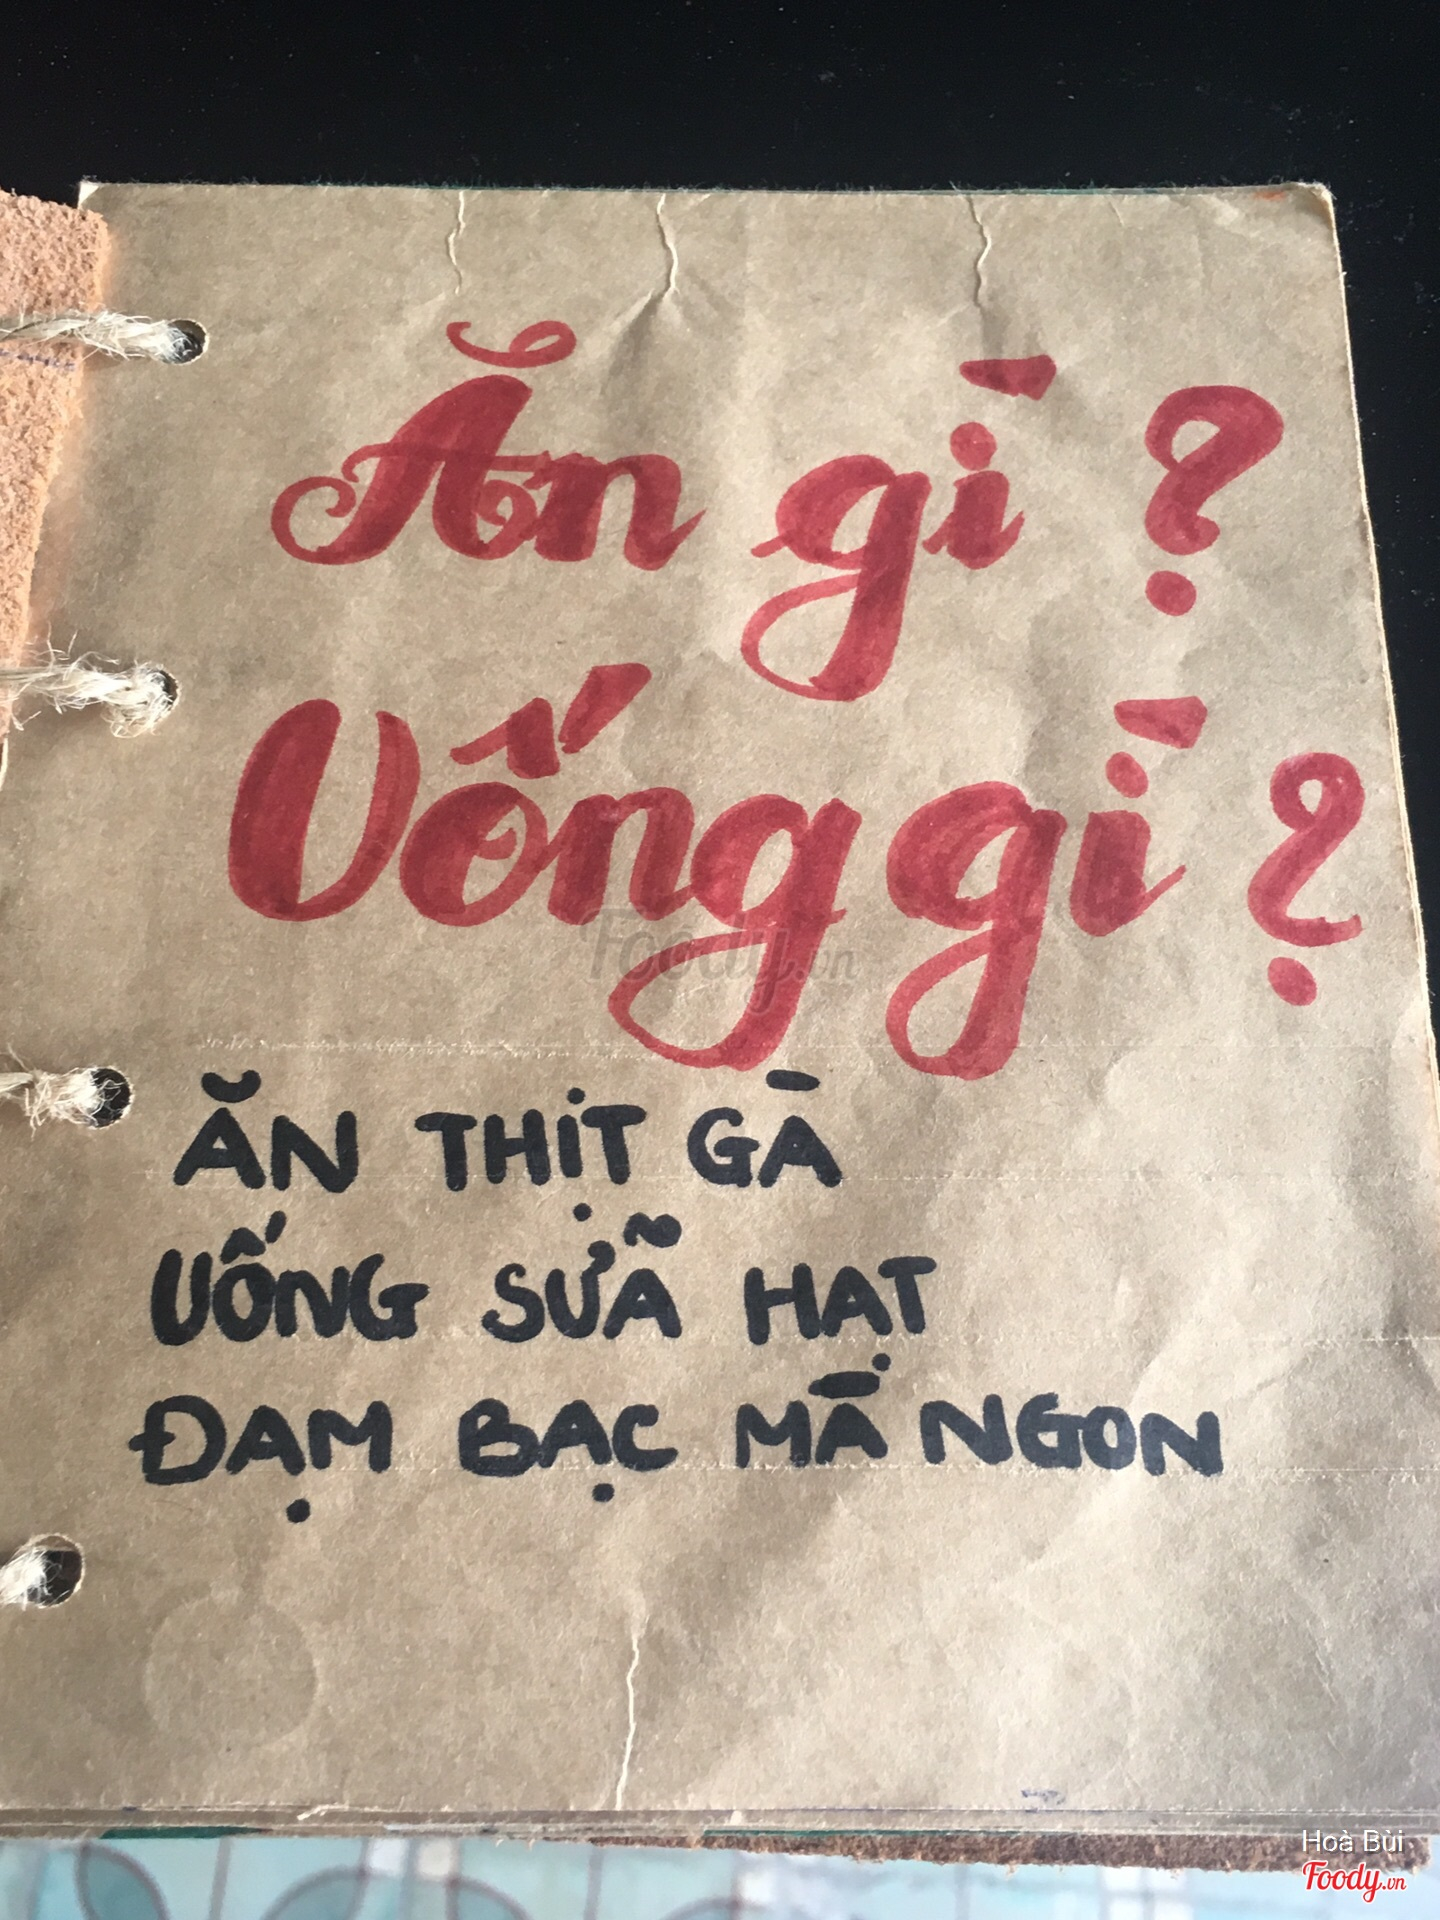 Ăn gì ?
Uống gì ?
Foody.vn
ĂN THỊT GÀ
UỐNG SỮA HẠT
ĐẠM BẠC MÀ NGON
Hoà Bùi
Foody.vn